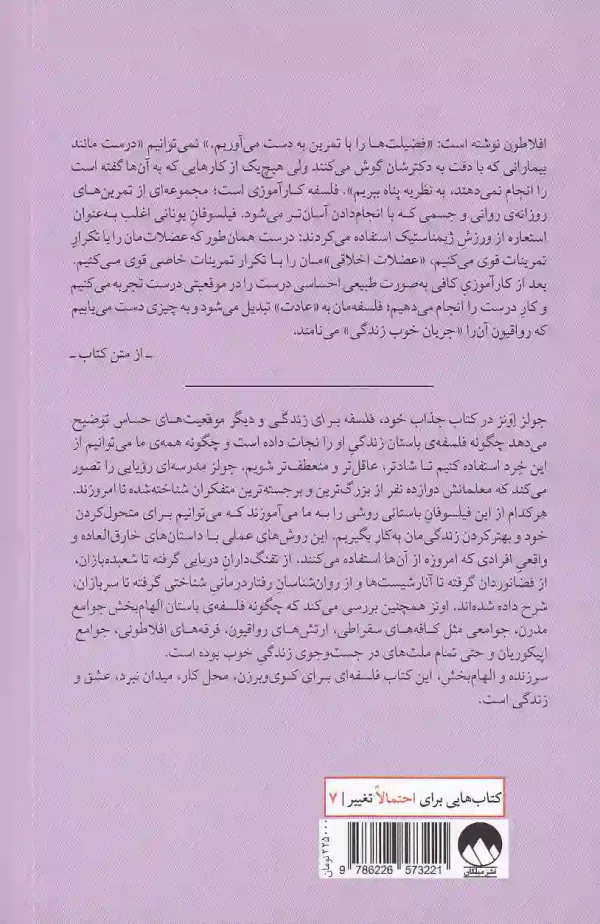 افلاطون نوشته است: «فضیلت‌ها را با تمرین به دست می‌آوریم.» نمی‌توانیم «درست مانند
بیمارانی که با دقت به دکترشان گوش می‌کنند ولی هیچ‌یک از کارهایی که به آن‌ها گفته است
را انجام نمی‌دهند، به نظریه پناه ببریم». فلسفه کارآموزی است؛ مجموعه‌ای از تمرین‌های
روزانه‌ی روانی و جسمی که با انجام‌دادن آسان‌تر می‌شود. فیلسوفانِ یونانی اغلب به‌عنوان
استعاره از ورزش ژیمناستیک استفاده می‌کردند: درست همان‌طور که عضلات‌مان را با تکرارِ
تمرینات قوی می‌کنیم، «عضلات اخلاقی»مـان را بـا تکـرار تمرینات خاصی قوی می‌کنیم.
بعد از کارآموزیِ کافی به‌صورت طبیعی احساسی درست را در موقعیتی درست تجربه می‌کنیم
و کارِ درست را انجام می‌دهیم؛ فلسفه‌مان به «عادت» تبدیل می‌شود و به چیزی دست می‌یابیم
که رواقیون آن‌را «جریان خوب زندگی» می‌نامند.
ـ از متن کتاب ـ
جولز اِوَنز در کتاب جذاب خود، فلسفه بـرای زندگـی و دیگر موقعیت‌هـای حسـاس توضیح
می‌دهد چگونه فلسفه‌ی باستان زندگیِ او را نجات داده است و چگونه همه‌ی ما می‌توانیم از
این خِرد استفاده کنیم تـا شادتر، عاقل‌تر و منعطف‌تر شویم. جولز مدرسه‌ای رؤیایی را تصور
می‌کند که معلمانش دوازده نفر از بزرگ‌ترین و برجسته‌ترین متفکران شناخته‌شده تا امروزند.
هرکدام از این فیلسوفانِ باستانی روشی را بـه ما می‌آموزند کـه می‌توانیم برای متحول‌کردن
خود و بهترکردن زندگی‌مان به‌کار بگیریم. این روش‌های عملی بـا داستان‌های خارق‌العاده و
واقعیِ افرادی که امروزه از آن‌ها استفاده می‌کنند، از تفنگ‌دارانِ دریایی گرفته تا شعبده‌بازان،
از فضانوردان گرفته تا آنارشیست‌ها و از روان‌شناسانِ رفتاردرمانیِ شناختی گرفته تا سربازان،
شرح داده شده‌اند. اونز همچنین بررسی می‌کند که چگونه فلسفه‌ی باستان الهام‌بخش جوامع
مدرن، جوامعی مثل کـافه‌های سقراطی، ارتش‌های رواقیون، فرقه‌های افلاطونی، جوامع
اپیکوریان و حتی تمام ملت‌های در جست‌وجوی زندگیِ خوب بوده است.
سرزنده و الهام‌بخش، این کتاب فلسفه‌ای برای کوی‌وبرزن، محل کار، میدان نبرد، عشق و
زندگی است.
کتاب‌هایی برای احتمالاً تغییر | ۷
۲۲۵۰۰۰ تومان
نشر میلکان
9 786226 573221